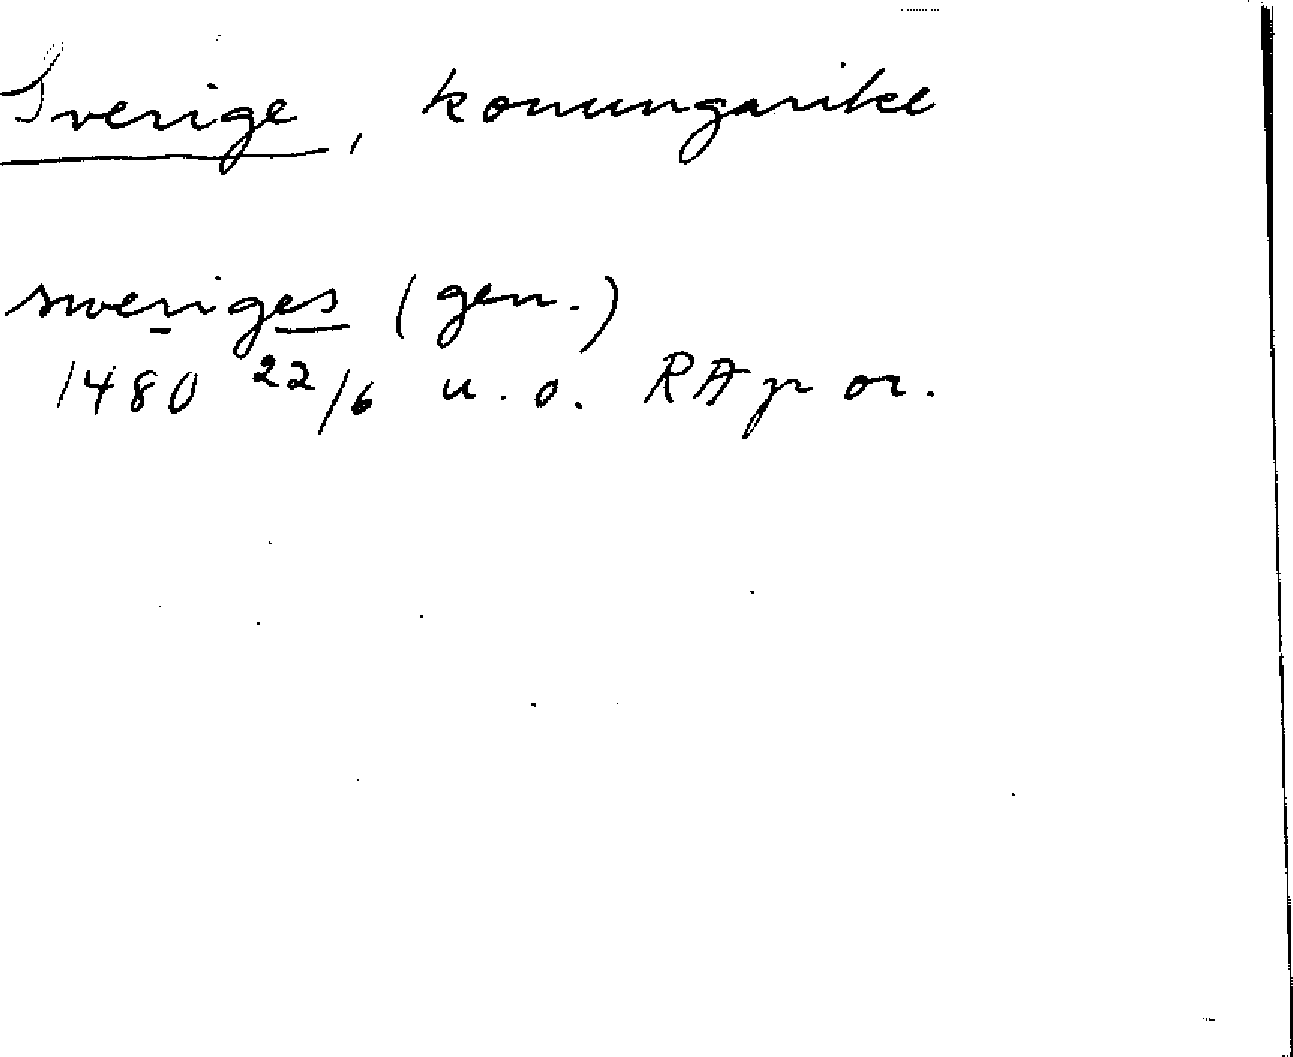 Sverige, konungarike
sweriges (gen.)
1480 22/6 u.o. RAp or.